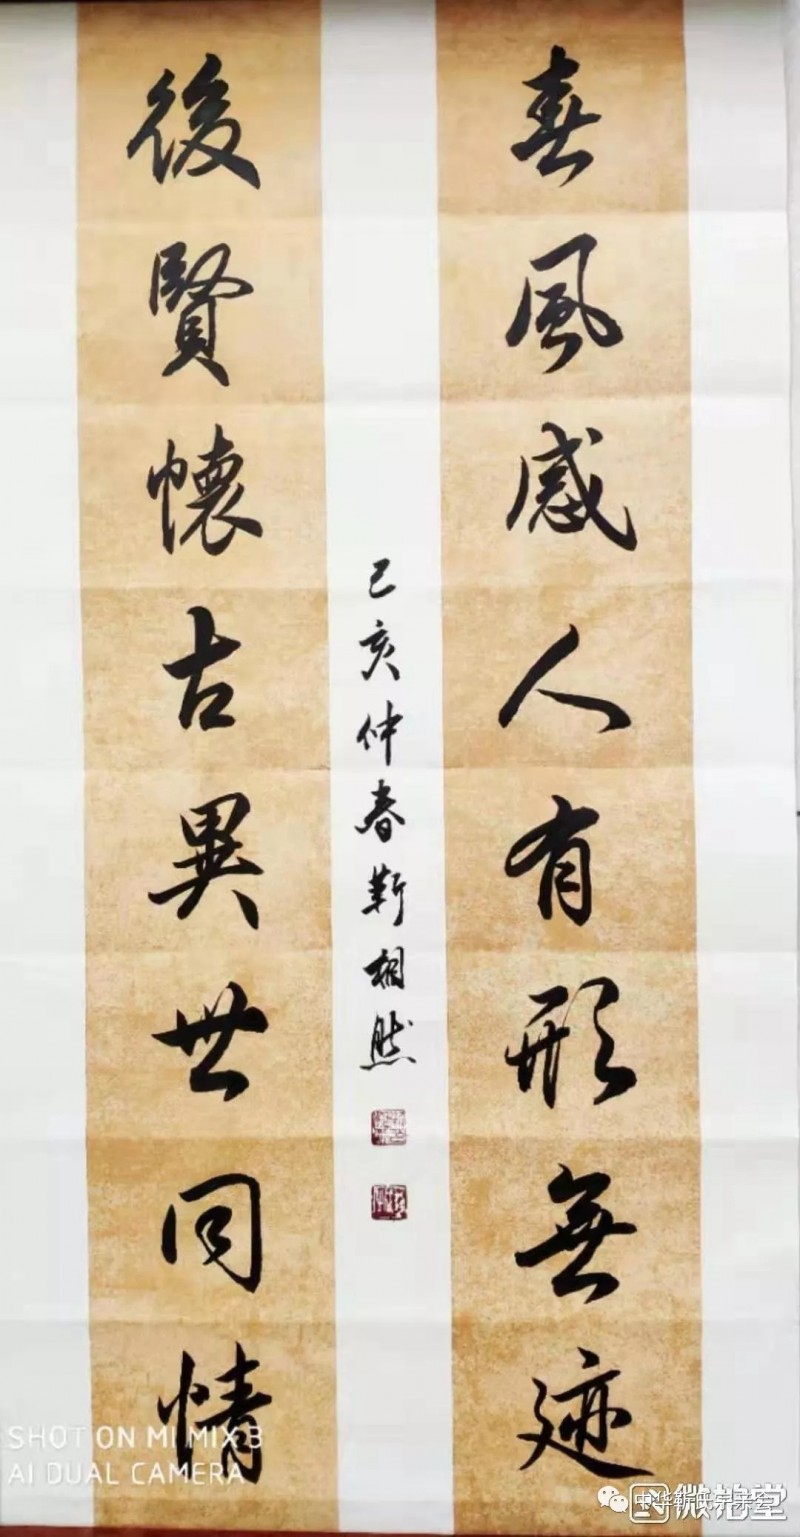 春風感人有形無迹
後賢懷古異世同情
己亥仲春靳相然
SHOT ON MI MIX 3
AI DUAL CAMERA